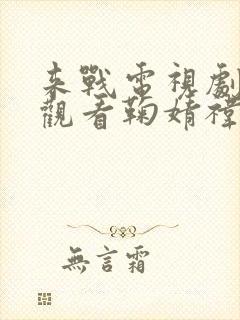 来戰電視劇
觀看鞠婧禕
無言霜